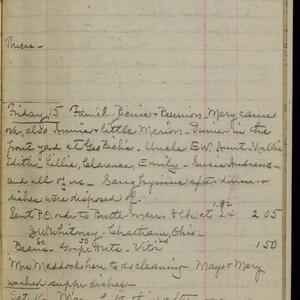 Friday 15 Famil Picnic & Reunion Mary came
over, also Annie & little Marion - Dinner in the
front yard at Geo Uncles E.W. Aunt Mollie
Edith Lillie, Clarence, Emily - Susie Andrews -
and all of us - Sang hymns after dinner &
dishes were disposed of -
1.92
Sent P.O. order to Butter man. 8 lb at 24 2 05
J.W. Whitney - Chatham, Ohio -
Beans 50 Grape Nuts 1 50
Mrs Maddocks here to do cleaning Maye & Mary
washed supper dishes -